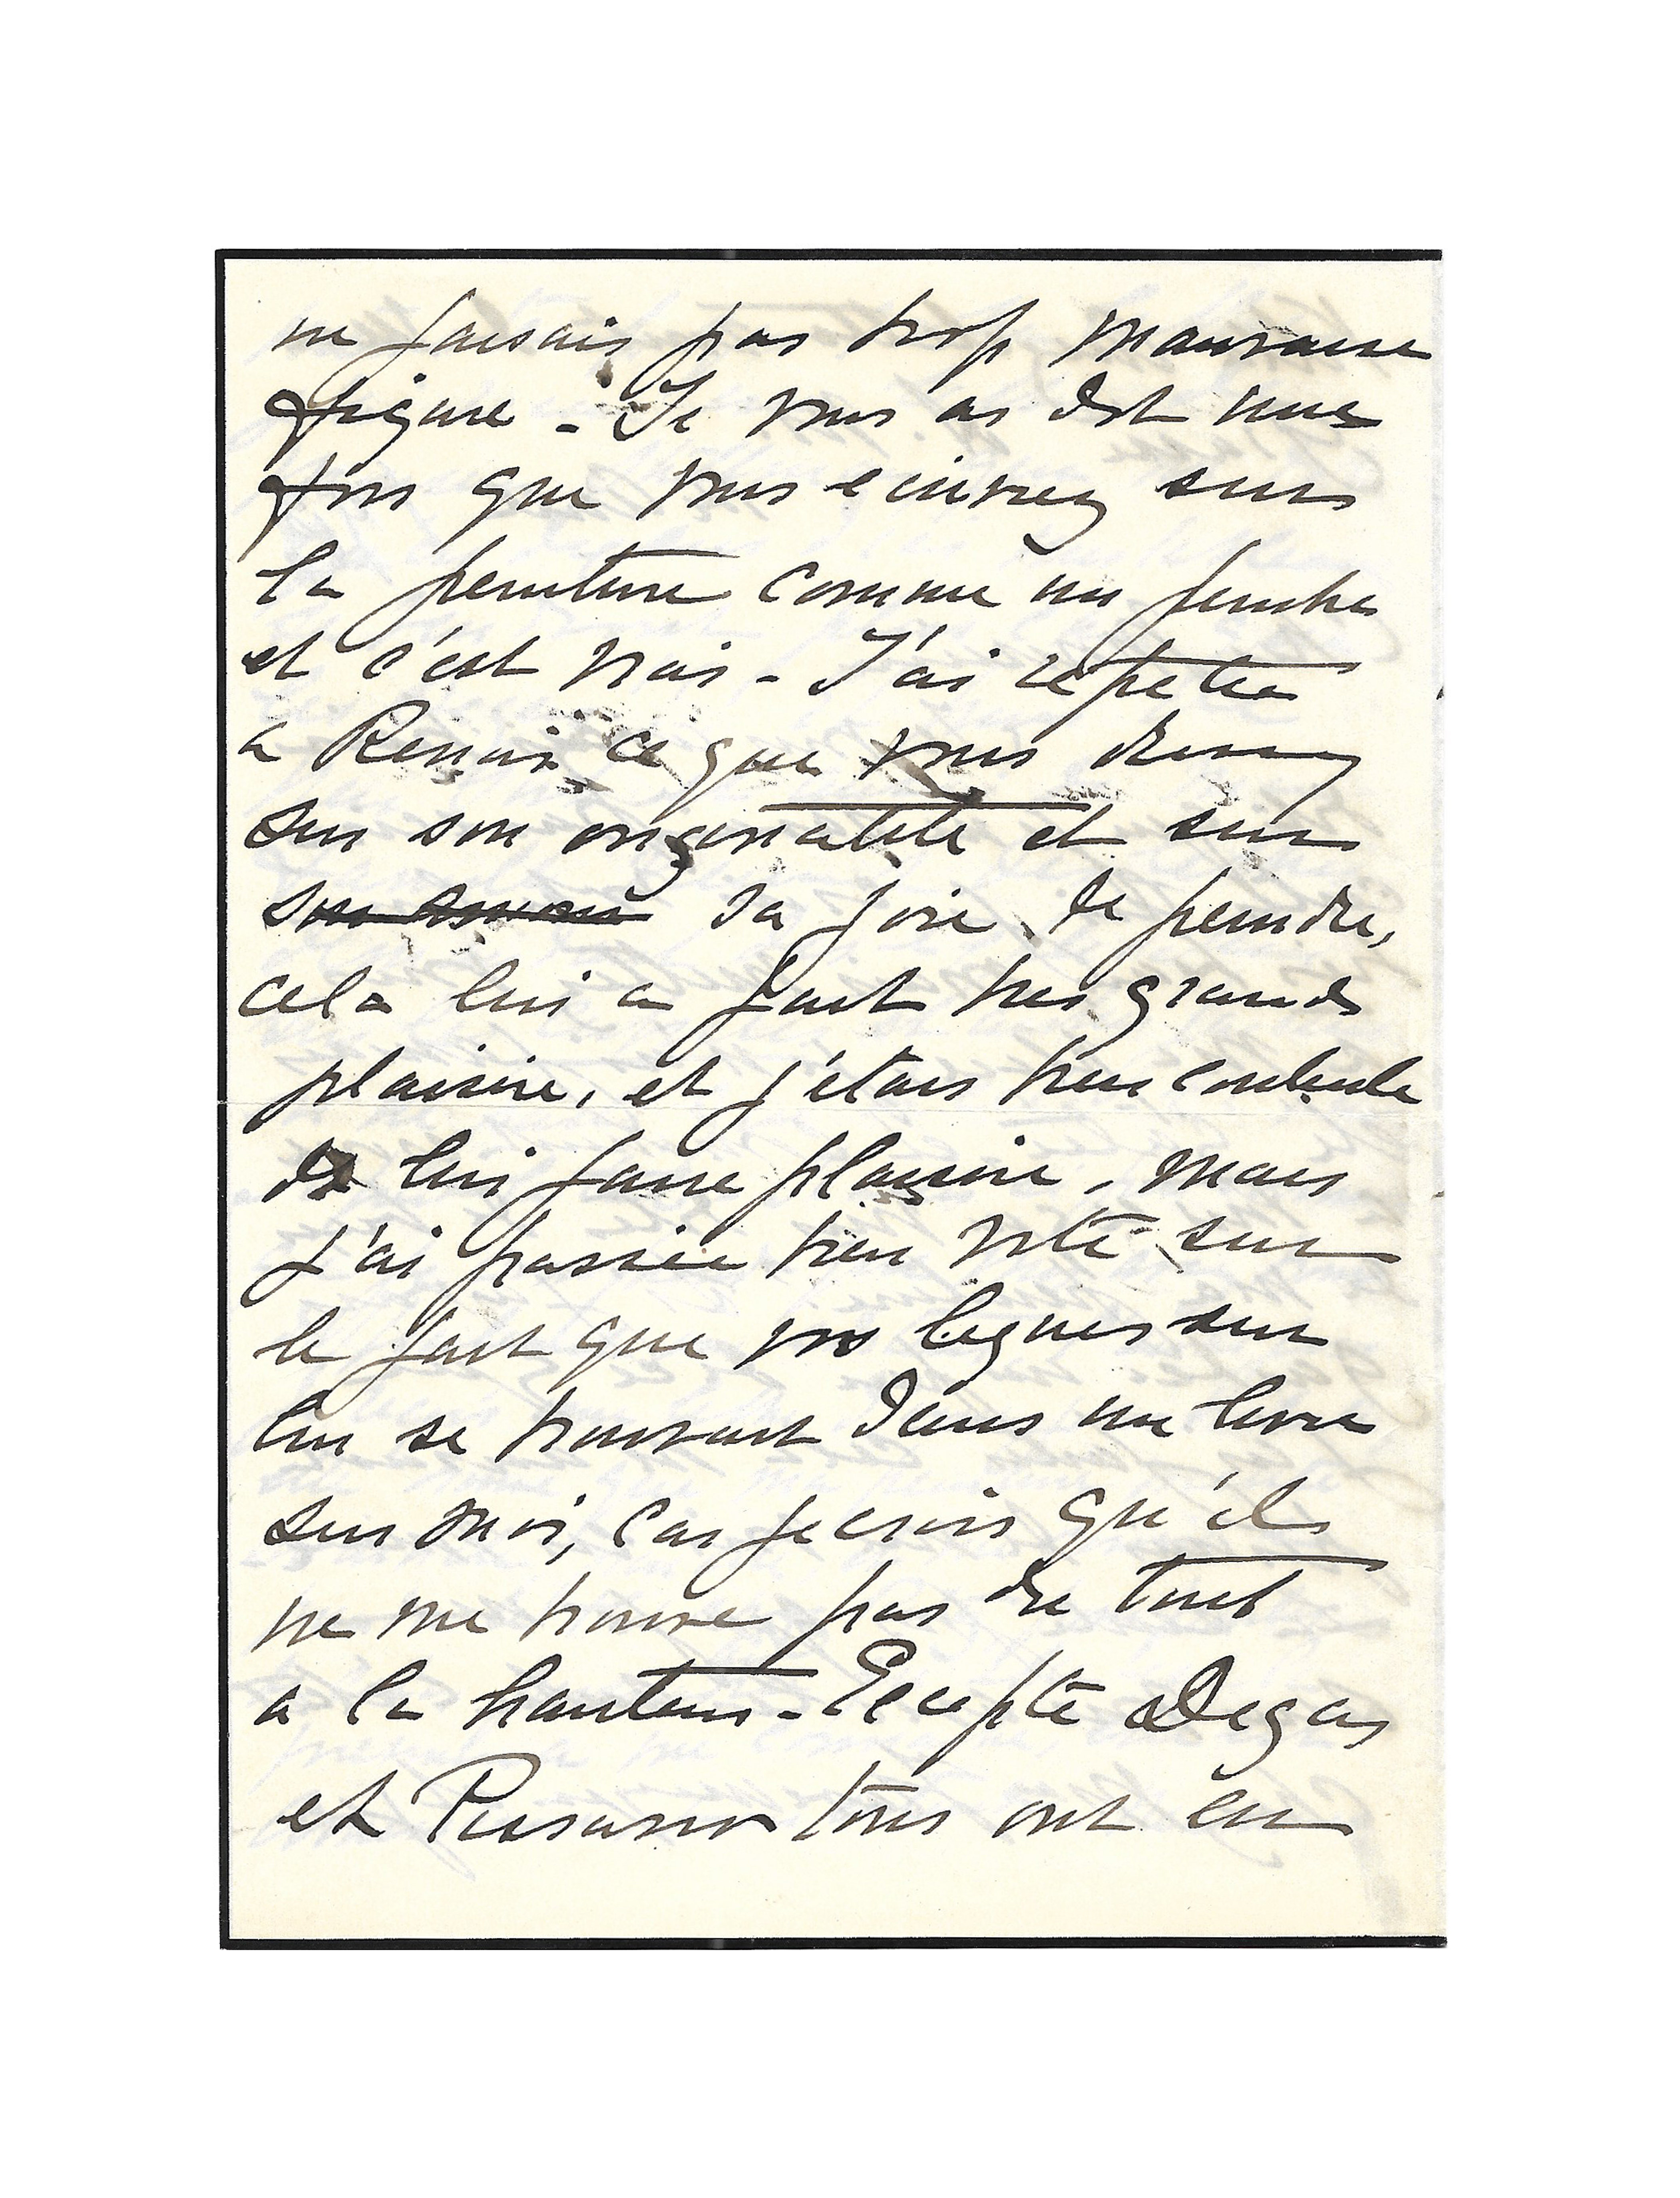 ne faisais pas trop mauvaise
figure - Je vous ai dit une
fois que vous ecrivez sur
la peinture comme un peintre
et c'est vrai - J'ai repetée
a Renoir ce que vous disiez
sur son originalité et sur
son amour sa joie de peindre,
cela lui a fait tres grand
plaisire, et j'etais bien contente
de lui faire plaisire, mais
j'ai passée bien vite sur
le fait que vos lignes sur
lui se trouvait dans un livre
sur moi, car je crois qu'il
ne me trouve pas du tout
a la hauteur - Excepté Degas
et Pissarro tous ont eu